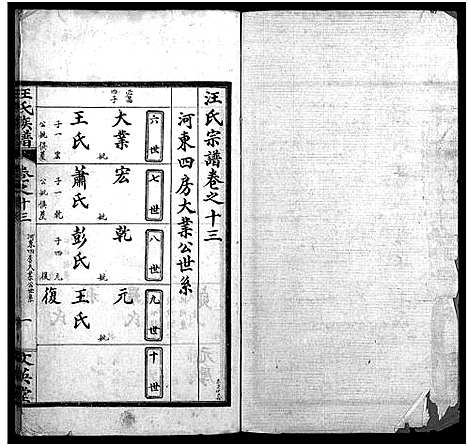 汪氏宗譜卷之十三
河東四房大業公世系
六世
大業
嵩四子
妣
王氏
子一宏
公妣俱墓
七世
宏
妣
蕭氏
子一乾
公妣俱墓
八世
乾
妣
彭氏
子四元
復
九世
元
王氏
妣
復
十世
汪氏族譜
卷之十三
河東四房大業公世系
一